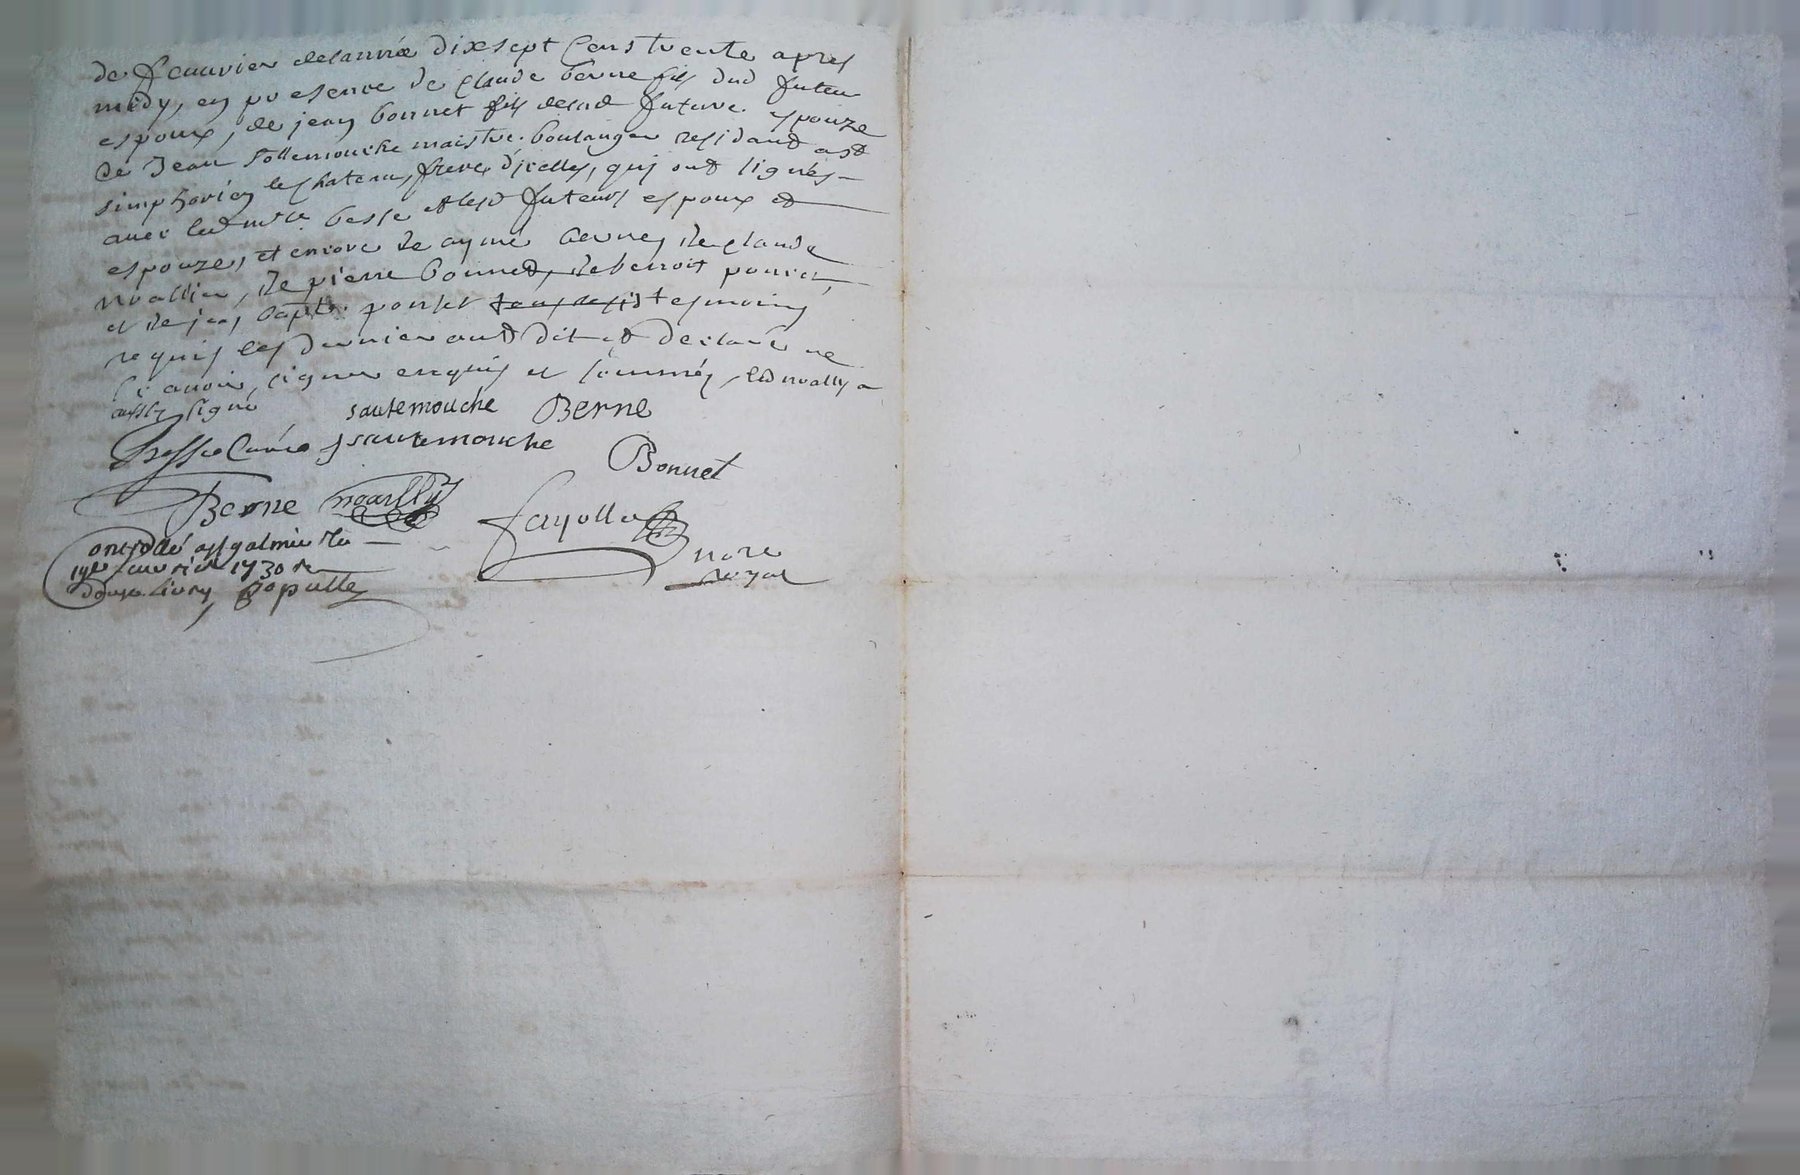 de feuvrier de lannée dixsept Cens trente apres
midy, en presence de Claude berne fils dud futeur
espoux, de jean bonnet fils de lad future espouze
de Jean sottemouche maistre boulanger residant a st
simphorien le chateau, frere d'icelles, qui ont signés
avec led besse et lesd futeurs espoux et
espouze, et encore de aymé berne, de Claude
noallie, de pierre bonnet, de benoit poncet,
et de jean bapte. poncet tesmoins
requis les dernier ont dit et declaré ne
scavoir signer enquis et sommés, led noally a
aussy signé sautemouche Berne
Besse Curé J sautemouche
Bonnet
Berne noailly
fayolle
nore
royal
a st galmier le
1730 R
douze livres